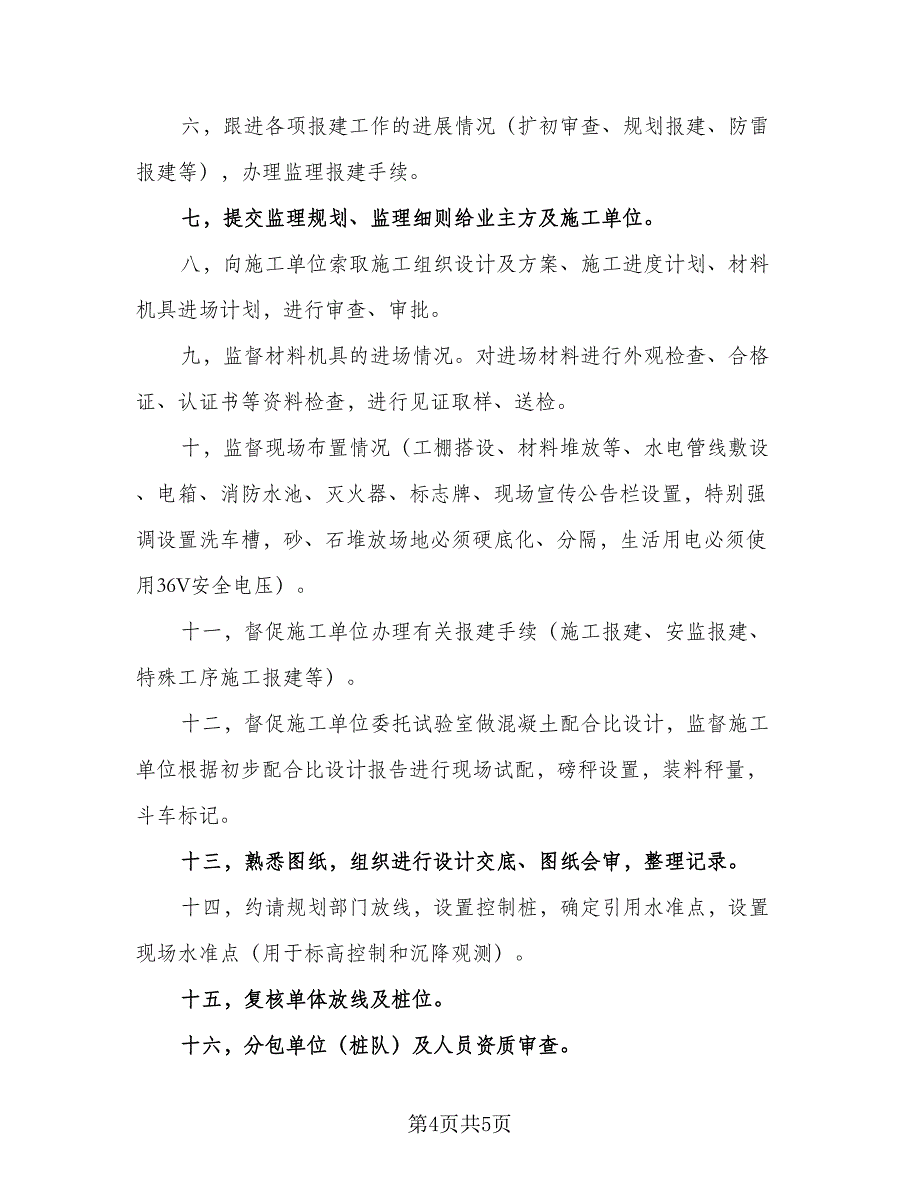 六，跟进各项报建工作的进展情况（扩初审查、规划报建、防雷
报建等），办理监理报建手续。
七，提交监理规划、监理细则给业主方及施工单位。
八，向施工单位索取施工组织设计及方案、施工进度计划、材料
机具进场计划，进行审查、审批。
九，监督材料机具的进场情况。对进场材料进行外观检查、合格
证、认证书等资料检查，进行见证取样、送检。
十，监督现场布置情况（工棚搭设、材料堆放等、水电管线敷设
、电箱、消防水池、灭火器、标志牌、现场宣传公告栏设置，特别强
调设置洗车槽，砂、石堆放场地必须硬底化、分隔，生活用电必须使
用36V安全电压）。
十一，督促施工单位办理有关报建手续（施工报建、安监报建、
特殊工序施工报建等）。
十二，督促施工单位委托试验室做混凝土配合比设计，监督施工
单位根据初步配合比设计报告进行现场试配，磅秤设置，装料秤量，
斗车标记。
十三，熟悉图纸，组织进行设计交底、图纸会审，整理记录。
十四，约请规划部门放线，设置控制桩，确定引用水准点，设置
现场水准点（用于标高控制和沉降观测）。
十五，复核单体放线及桩位。
十六，分包单位（桩队）及人员资质审查。
第4页共5页